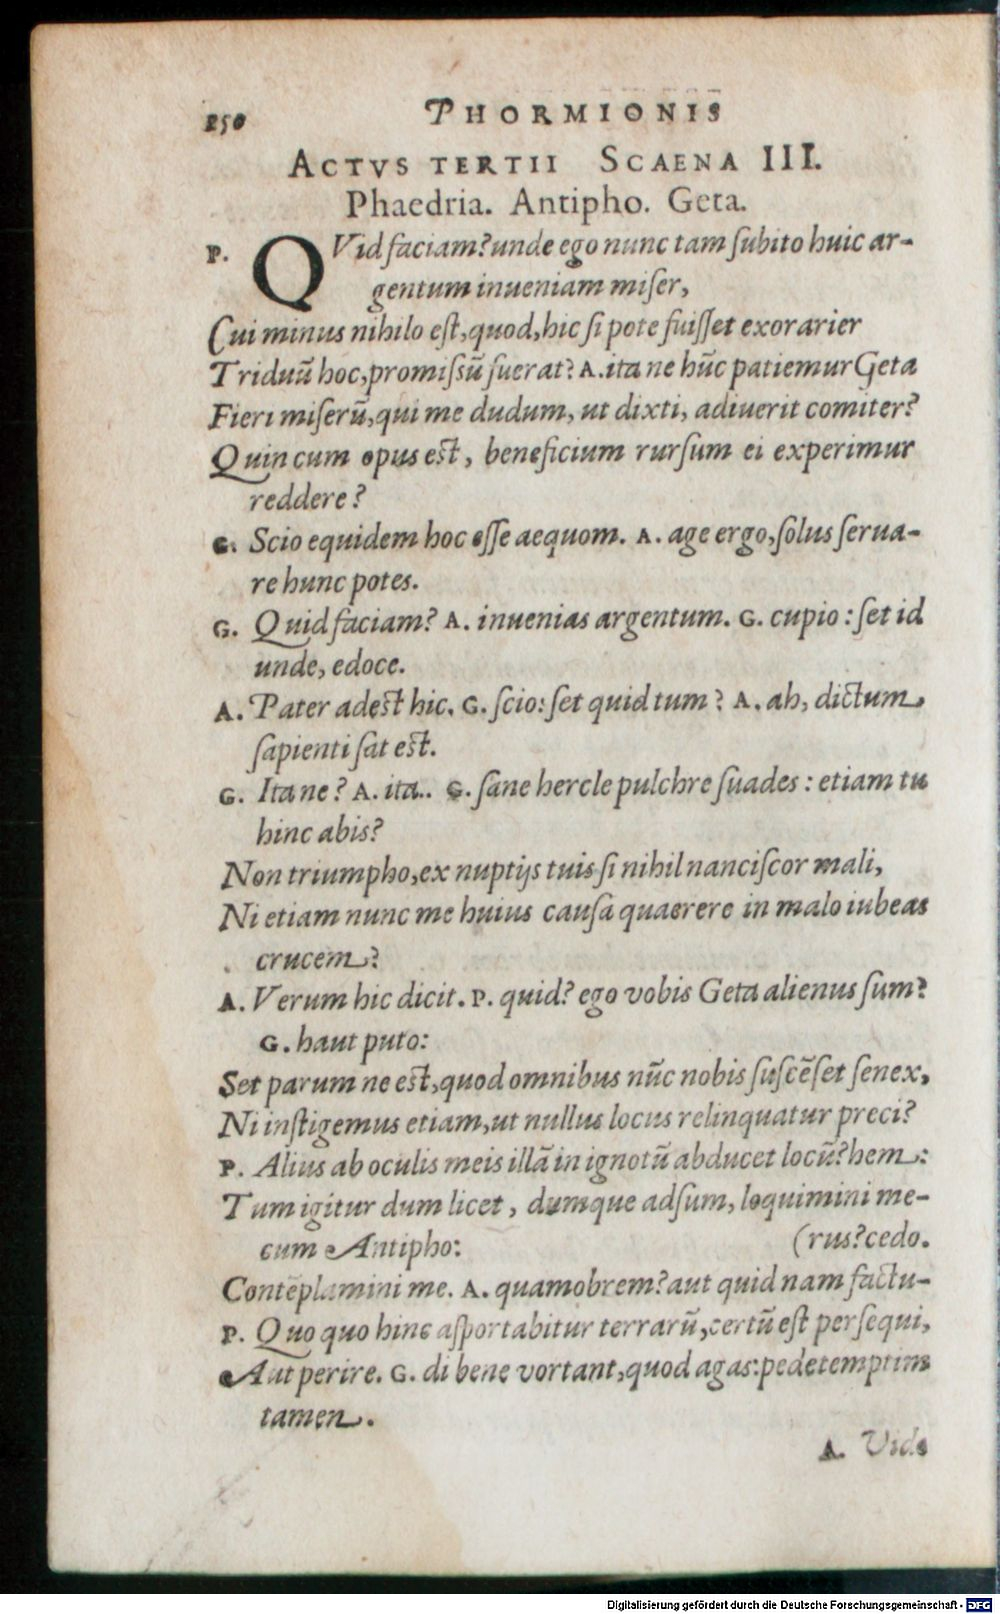 250 PHORMIONIS
ACTVS TERTII SCAENA III.
Phaedria. Antipho. Geta.
P. QVid faciam? unde ego nunc tam ſubito huic ar-
gentum inueniam miſer,
Cui minus nihilo eſt, quod, hic ſi pote fuiſſet exorarier
Triduū hoc, promiſsū fuerat? A. ita ne hūc patiemur Geta
Fieri miſerū, qui me dudum, ut dixti, adiuerit comiter?
Quin cum opus est, beneficium rurſum ei experimur
reddere?
G. Scio equidem hoc eſſe aequom. A. age ergo, ſolus ſerua-
re hunc potes.
G. Quid faciam? A. inuenias argentum. G. cupio: ſet id
unde, edoce.
A. Pater adest hic. G. ſcio: ſet quid tum? A. ah, dictum
ſapienti ſat est.
G. Ita ne? A. ita.. G. ſane hercle pulchre ſuades: etiam tu
hinc abis?
Non triumpho, ex nuptijs tuis ſi nihil nanciſcor mali,
Ni etiam nunc me huius cauſa quaerere in malo iubeas
crucem?
A. Verum hic dicit. P. quid? ego vobis Geta alienus ſum?
G. haut puto:
Set parum ne est, quod omnibus nūc nobis ſuſcēſet ſenex,
Ni inſtigemus etiam, ut nullus locus relinquatur preci?
P. Alius ab oculis meis illā in ignotū abducet locū? hem:
Tum igitur dum licet, dumque adſum, loquimini me-
cum Antipho: (rus? cedo.
Contēplamini me. A. quamobrem? aut quid nam factu-
P. Quo quo hinc aſportabitur terrarū, certū eſt perſequi,
Aut perire. G. di bene vortant, quod agas: pedetemptim
tamen.
A. Vide
Digitalisierung gefördert durch die Deutsche Forschungsgemeinschaft - DFG